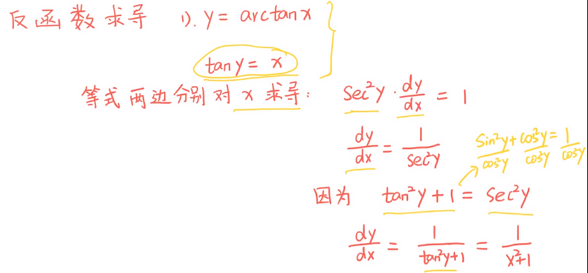 反函数求导 1). y = arctanx
tany = x
等式两边分别对 x 求导: sec²y · dy/dx = 1
dy/dx = 1/sec²y
sin²y/cos²y + cos²y/cos²y = 1/cos²y
因为 tan²y + 1 = sec²y
dy/dx = 1/(tan²y+1) = 1/(x²+1)